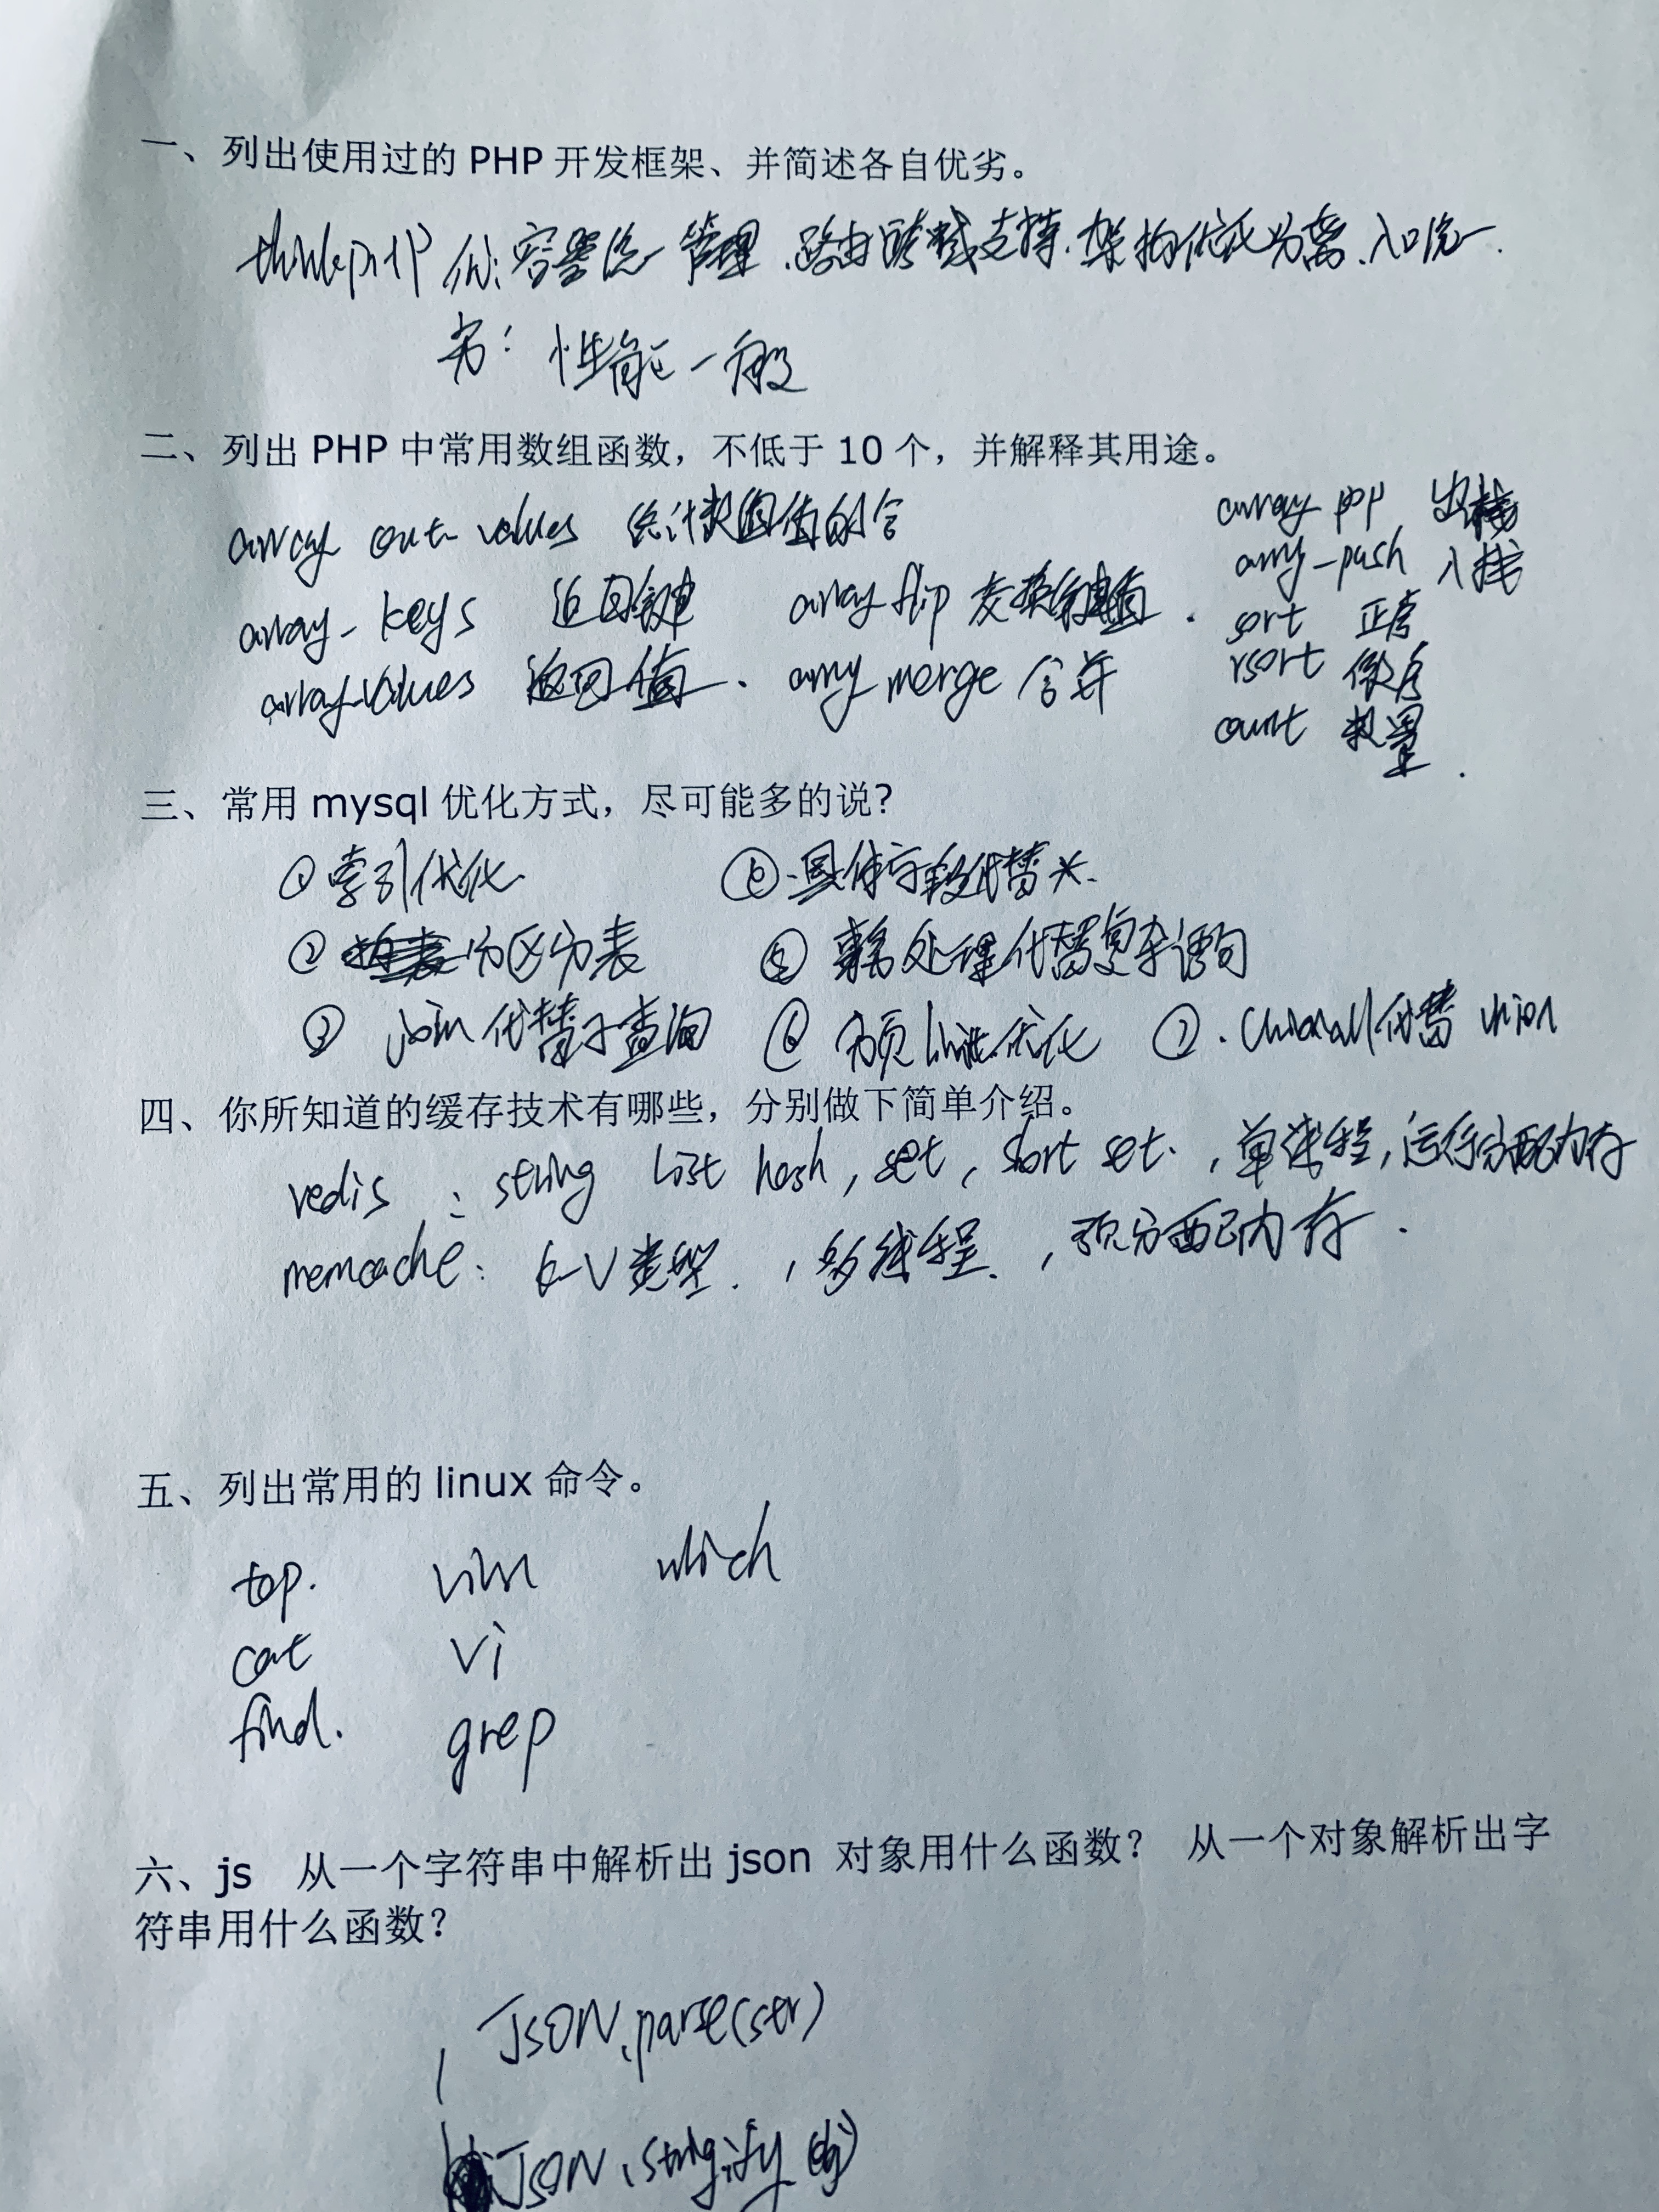 一、列出使用过的 PHP 开发框架、并简述各自优劣。
thinkphp 优: 容器统一管理、路由跨域支持、架构优化分离、入口统一.
劣: 性能一般
二、列出 PHP 中常用数组函数，不低于 10 个，并解释其用途。
array values 统计数组值的
array_keys 返回键 array flip 交换键值.
array_values 返回值. array merge 合并
array pop 出栈
array_push 入栈
sort 正序
rsort 倒序
count 数量.
三、常用 mysql 优化方式，尽可能多的说？
① 索引优化 ④ 具体字段代替*.
② 分区分表 ⑤ 事务处理代替复杂语句
③ join 代替子查询 ⑥ 分页limit优化 ⑦. 代替 union
四、你所知道的缓存技术有哪些，分别做下简单介绍。
redis : string list hash, set, sort set. , 单线程, 运行分配内存
memcache: k-v 类型. , 多线程. , 预分配内存.
五、列出常用的 linux 命令。
top. vim which
cat vi
find. grep
六、js 从一个字符串中解析出 json 对象用什么函数？ 从一个对象解析出字
符串用什么函数？
JSON.parse(str)
JSON.stringify(obj)